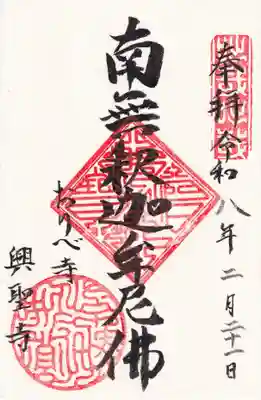 奉拝 令和八年二月二十一日
南無釈迦牟尼佛
おりべ寺
興聖寺